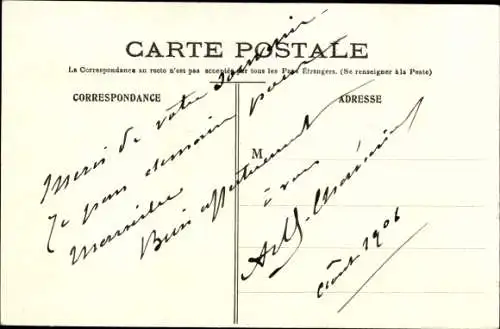 CARTE POSTALE
La Correspondance au recto n'est pas acceptée par tous les Pays Étrangers. (Se renseigner à la Poste)
CORRESPONDANCE
ADRESSE
M
Merci de votre souvenir
Je pars demain pour
Marseille
Bien affectueusement
à vous
Août 1906